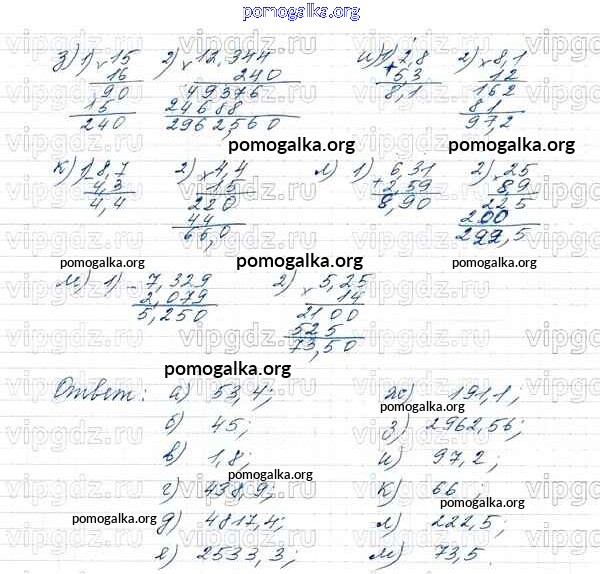 pomogalka.org
з) 1) × 15   2) × 12,344   и) 1) + 2,8   2) × 8,1
16   240   5,3   12
90   49376   8,1   162
15   24688   81
240   2962,560   97,2
pomogalka.org   pomogalka.org
к) 1) - 8,7   2) × 4,4   л) 1) + 6,31   2) × 25
4,3   15   2,59   89
4,4   220   8,90   225
44   200
66,0   222,5
pomogalka.org   pomogalka.org   pomogalka.org
м) 1) - 7,329   2) × 5,25
2,079   14
5,250   2100
525
73,50
pomogalka.org
Ответ: а) 53,4;   ж) 191,1;
pomogalka.org
б) 45;   з) 2962,56;
в) 1,8;   и) 97,2;
pomogalka.org
г) 438,9;   к) 66;
pomogalka.org   pomogalka.org
д) 4817,4;   л) 222,5;
е) 2533,3;   м) 73,5.
pomogalka.org
vipgdz.ru